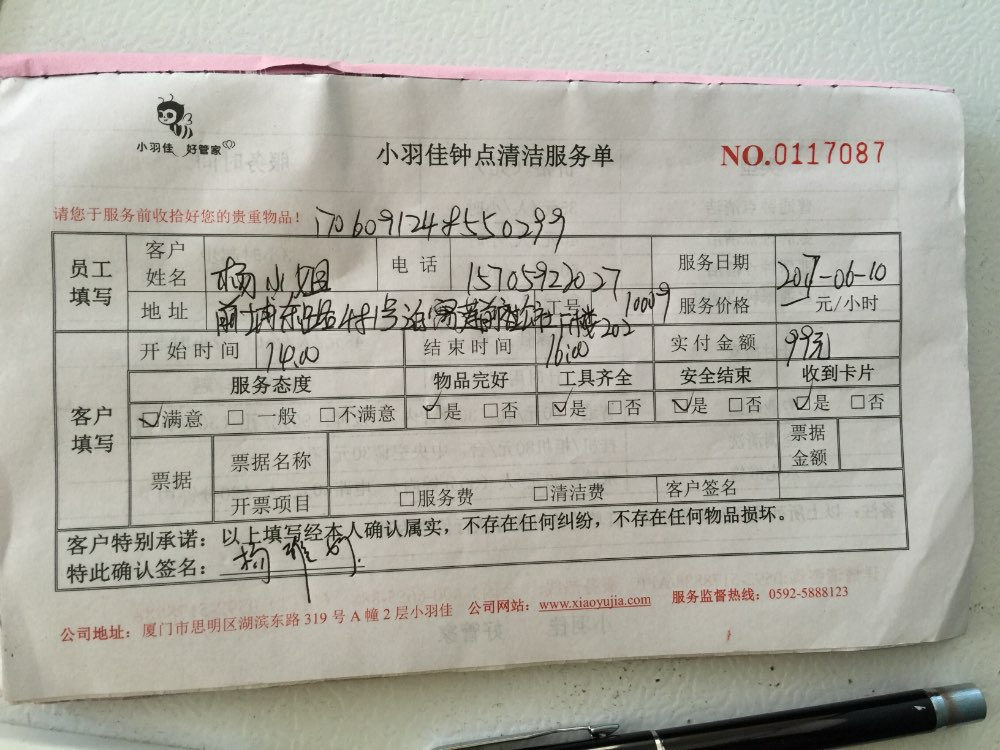 小羽佳 好管家
小羽佳钟点清洁服务单
NO.0117087
请您于服务前收拾好您的贵重物品！
1706091248550299
员工填写 客户姓名 杨小姐 电话 15705922027 服务日期 2017-06-10
地址 481号 202 工号 10009 服务价格 元/小时
客户填写 开始时间 14:00 结束时间 16:00 实付金额 99元
服务态度 物品完好 工具齐全 安全结束 收到卡片
☑满意 □一般 □不满意 ☑是 □否 ☑是 □否 ☑是 □否 ☑是 □否
票据 票据名称 票据金额
开票项目 □服务费 □清洁费 客户签名
客户特别承诺：以上填写经本人确认属实，不存在任何纠纷，不存在任何物品损坏。
特此确认签名：杨
公司地址：厦门市思明区湖滨东路 319 号 A 幢 2 层小羽佳 公司网站：www.xiaoyujia.com 服务监督热线：0592-5888123